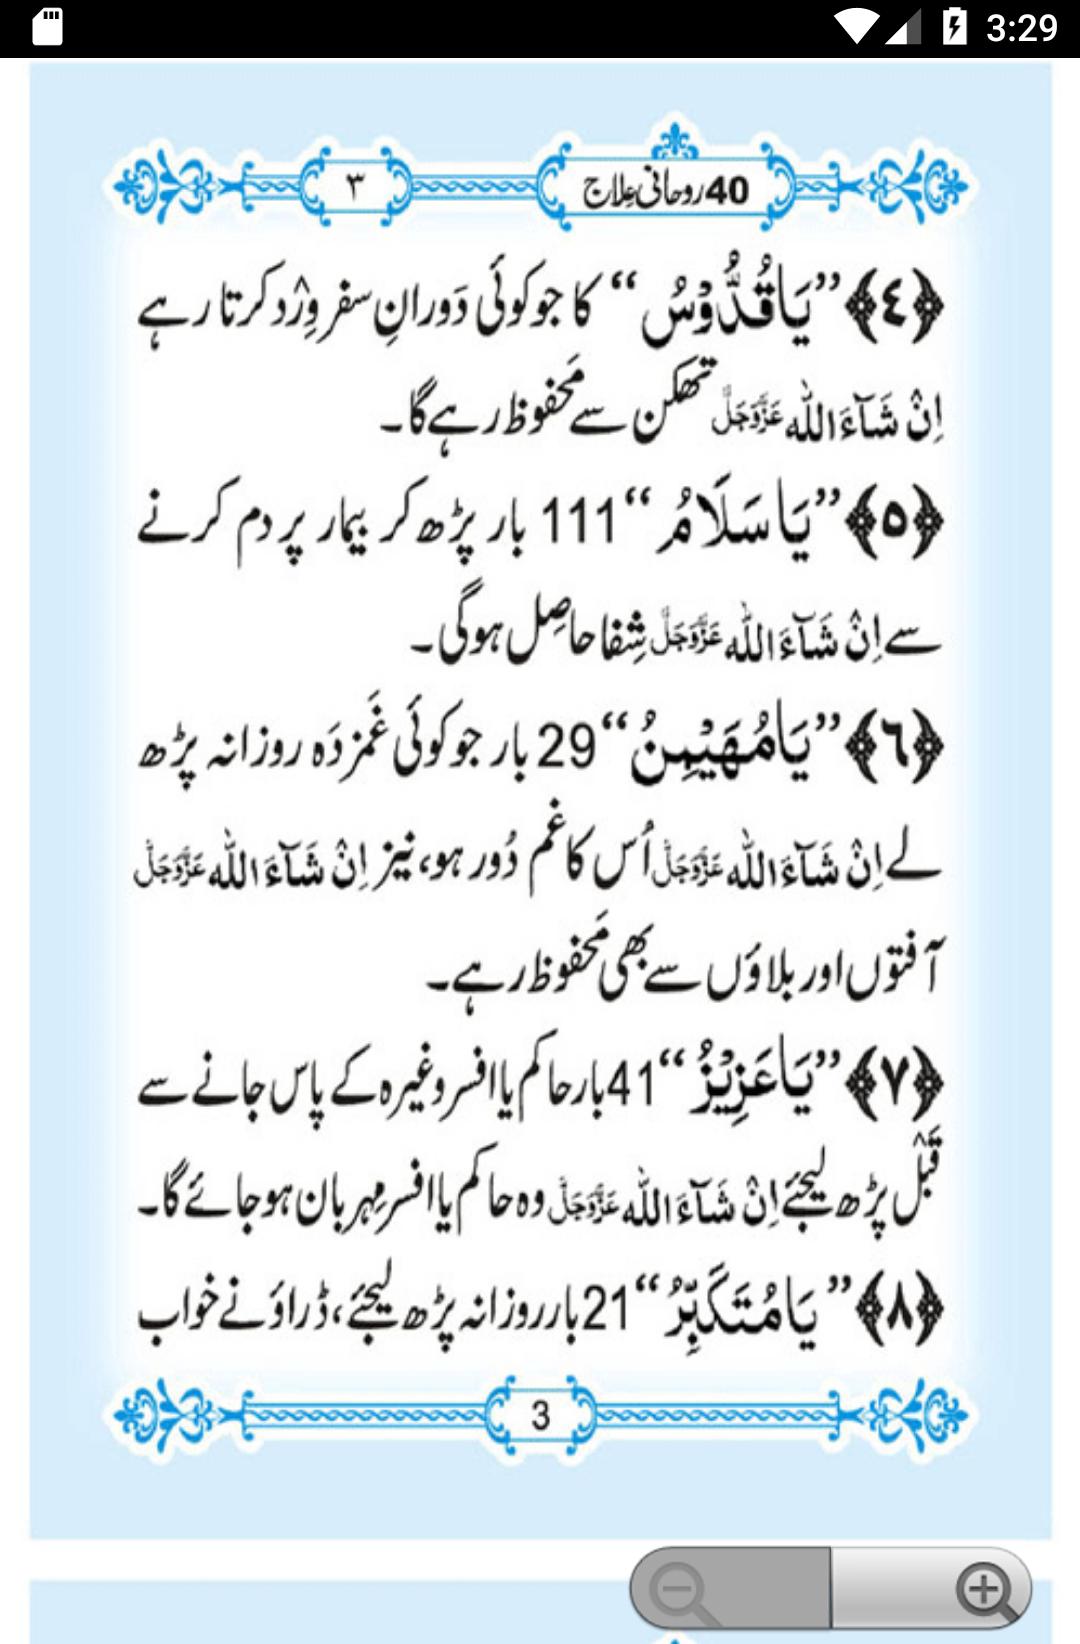 3:29
40 روحانی علاج
۳
﴿٤﴾ ”یَاقُدُّوْسُ“ کا جو کوئی دَورانِ سفر وِرْد کرتا رہے
اِنْ شَآءَ اللہ عَزَّوَجَلَّ تھکن سے مَحفوظ رہے گا۔
﴿٥﴾ ”یَا سَلَامُ“ 111 بار پڑھ کر بیمار پر دم کرنے
سے اِنْ شَآءَ اللہ عَزَّوَجَلَّ شِفا حاصِل ہوگی۔
﴿٦﴾ ”یَا مُھَیْمِنُ“ 29 بار جو کوئی غَمزدَہ روزانہ پڑھ
لے اِنْ شَآءَ اللہ عَزَّوَجَلَّ اُس کا غم دُور ہو، نیز اِنْ شَآءَ اللہ عَزَّوَجَلَّ
آفتوں اور بلاؤں سے بھی مَحفوظ رہے۔
﴿٧﴾ ”یَا عَزِیْزُ“ 41 بار حاکم یا افسر وغیرہ کے پاس جانے سے
قَبْل پڑھ لیجئے اِنْ شَآءَ اللہ عَزَّوَجَلَّ وہ حاکم یا افسر مِہربان ہو جائے گا۔
﴿٨﴾ ”یَا مُتَکَبِّرُ“ 21 بار روزانہ پڑھ لیجئے، ڈراؤنے خواب
3